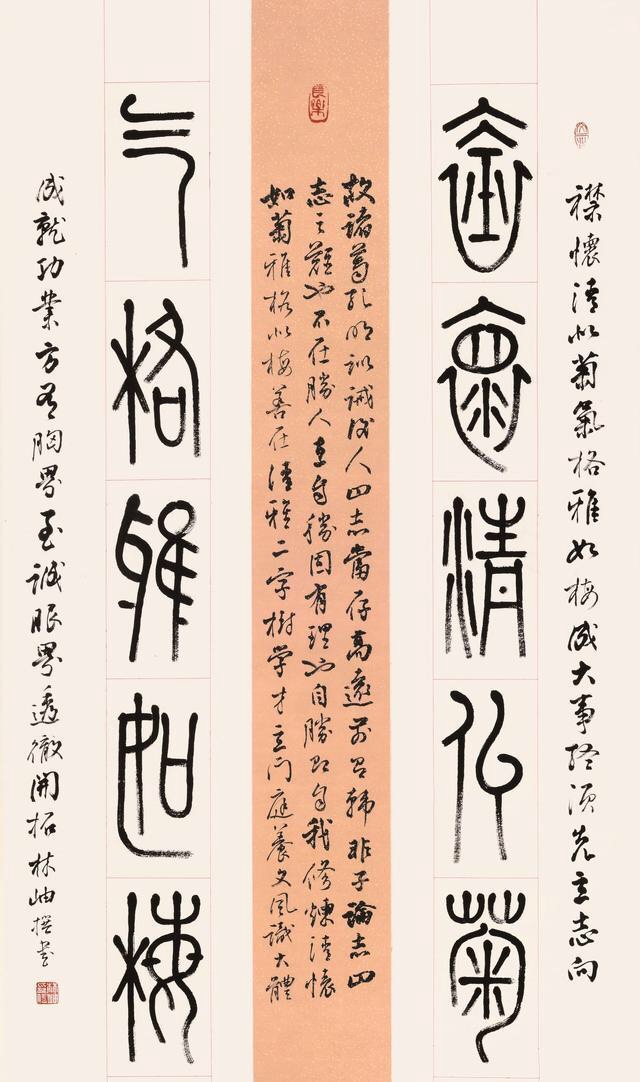 襟懷清似菊氣格雅如梅成大事終須先立志向
襟懷清似菊
故諸葛孔明訓誡後人曰志當存高遠前有韓非子論志曰
志之難也不在勝人在自勝固有理也自勝即自我修煉清懷
如菊雅格似梅善在清雅二字樹學才立門庭養文風識大體
气格雅如梅
成就功業方有胸界至誠眼界透徹開拓林岫撰書